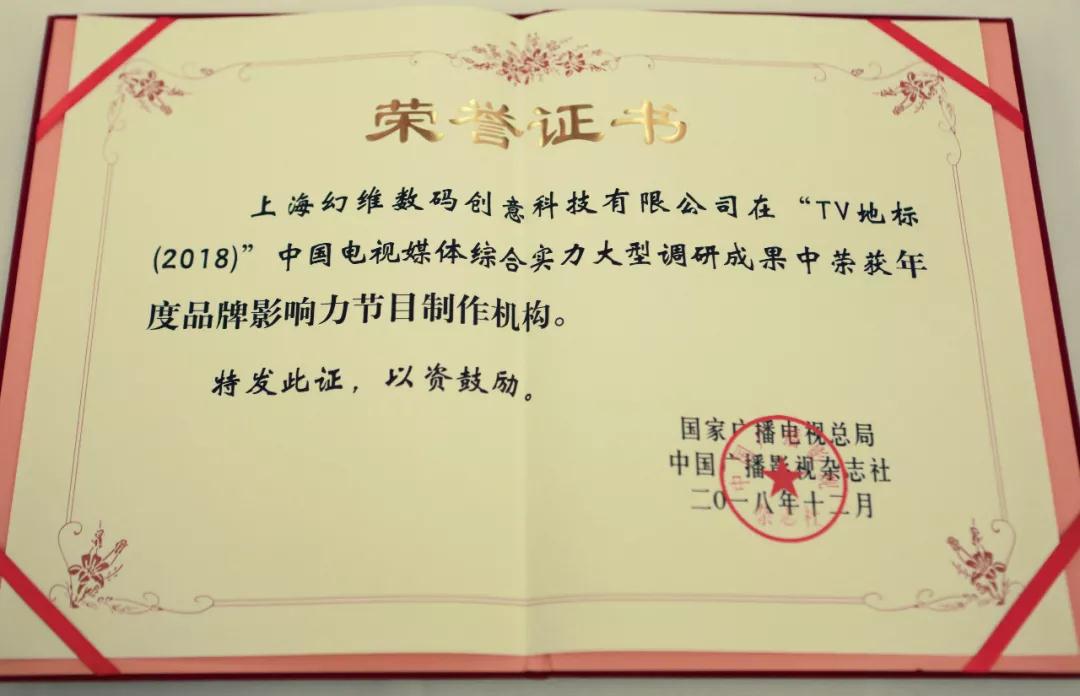 荣誉证书
上海幻维数码创意科技有限公司在“TV地标
(2018)”中国电视媒体综合实力大型调研成果中荣获年
度品牌影响力节目制作机构。
特发此证，以资鼓励。
国家广播电视总局
中国广播影视杂志社
二〇一八年十二月
杂志社